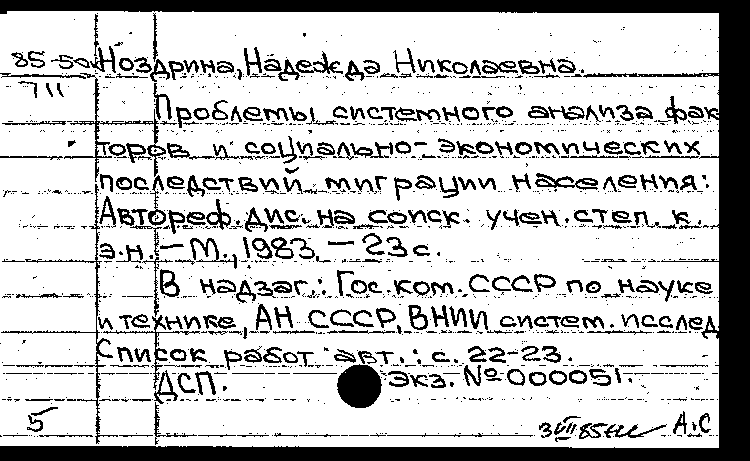 85-50 Ноздрина, Надежда Николаевна.
711
Проблемы системного анализа фак
торов и социально-экономических
последствий миграции населения:
Автореф. дис. на соиск. учен. степ. к.
э.н. - М., 1983. - 23 с.
В надзаг.: Гос. ком. СССР по науке
и технике, АН СССР, ВНИИ систем. исслед
Список работ авт.: с. 22-23.
ДСП. Экз. № 000051.
5
А.С